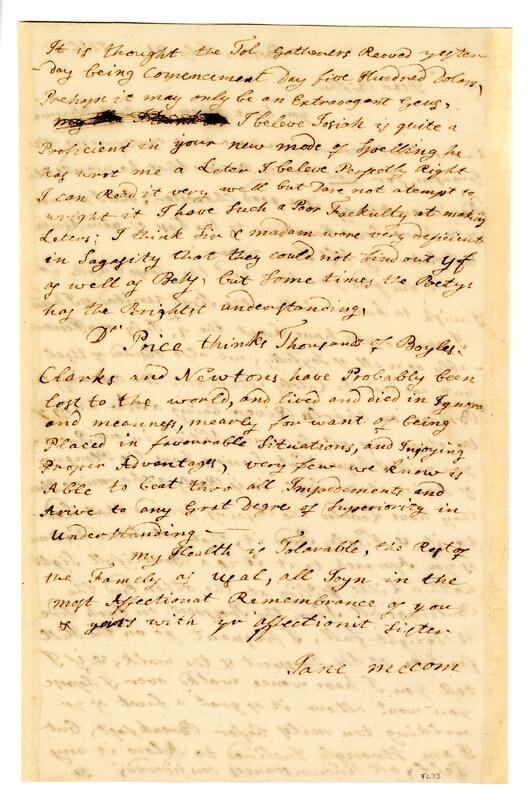 It is thought the Tol Gatherers Receved yester-
-day being Comencement Day five Hundred Dolars,
Perhaps it may only be an Extravagant Gess,
I beleve Josiah is quite a
Proficient in your new mode of Spelling he
has wrot me a Leter I beleve Perfectly Right
I can Read it very well but Dare not atempt to
wright it I have such a Poor Fackulty at making
Leters; I think Sir & madam ware very deficient
in Sagasity that they could not find out yf
as well as Bety, but some times the Betys
has the Brightst understanding,
Dr Price thinks Thousands of Boyles-
Clarks and Newtons have Probably been
lost to the world, and lived and died in Ignoranc
and meanness, mearly for want of being
Placed in favourable Situations, and Injoying
Proper Advantages, very few we know is
Able to beat thro all Impedements and
Arive to any Grat Degre of Superiority in
Understanding—
my Health is Tolarable, the Rest of
the Famely as usal, all Joyn in the
most Affectionat Remembrance of you
& yours with yr affectionit Sister
Jane mecom
FL73